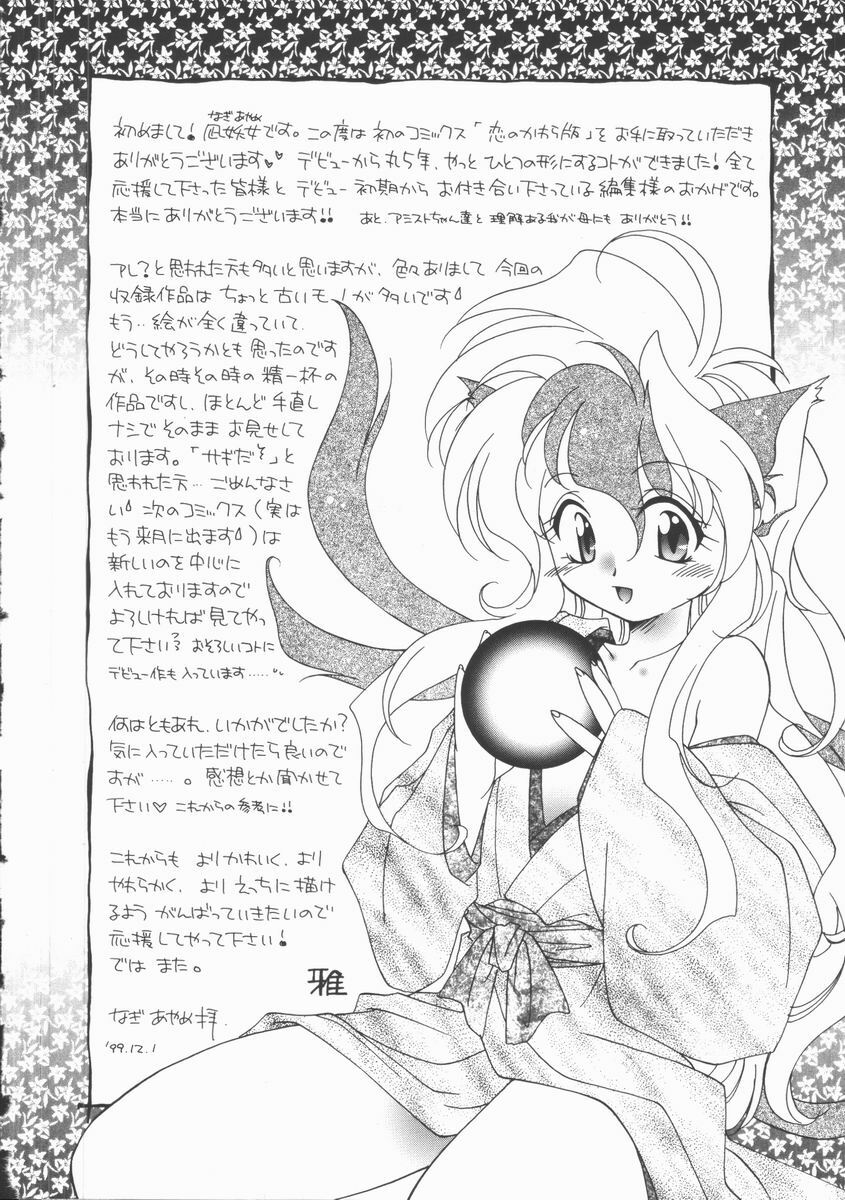 なぎあやめ
初めまして！凪妖女です。この度は初のコミックス「恋のかわら版」をお手に取っていただき
ありがとうございます♡♡ デビューから丸5年、やっとひとつの形にするコトができました！全て
応援して下さった皆様とデビュー初期からお付き合い下さっている編集様のおかげです。
本当にありがとうございます!! あと、アシストちゃん達と理解ある我が母にもありがとう!!
アレ？と思われた方も多いと思いますが、色々ありまして今回の
収録作品はちょっと古いモノが多いです
もう‥絵が全く違っていて、
どうしてやろうかとも思ったのです
が、その時その時の精一杯の
作品ですし、ほとんど手直し
ナシでそのままお見せして
おります。「サギだぞ」と
思われた方…ごめんなさ
い 次のコミックス（実は
もう来月に出ます）は
新しいのを中心に
入れておりますので
よろしければ見てやっ
て下さい? おそろしいコトに
デビュー作も入っています……
何はともあれ、いかがでしたか？
気に入っていただけたら良いので
すが……。感想とか聞かせて
下さい♡ これからの参考に!!
これからも よりかわいく、より
やわらかく、よりえっちに描け
るよう がんばっていきたいので
応援してやって下さい！
では また。
雅
なぎ あやめ 拝.
'99.12.1